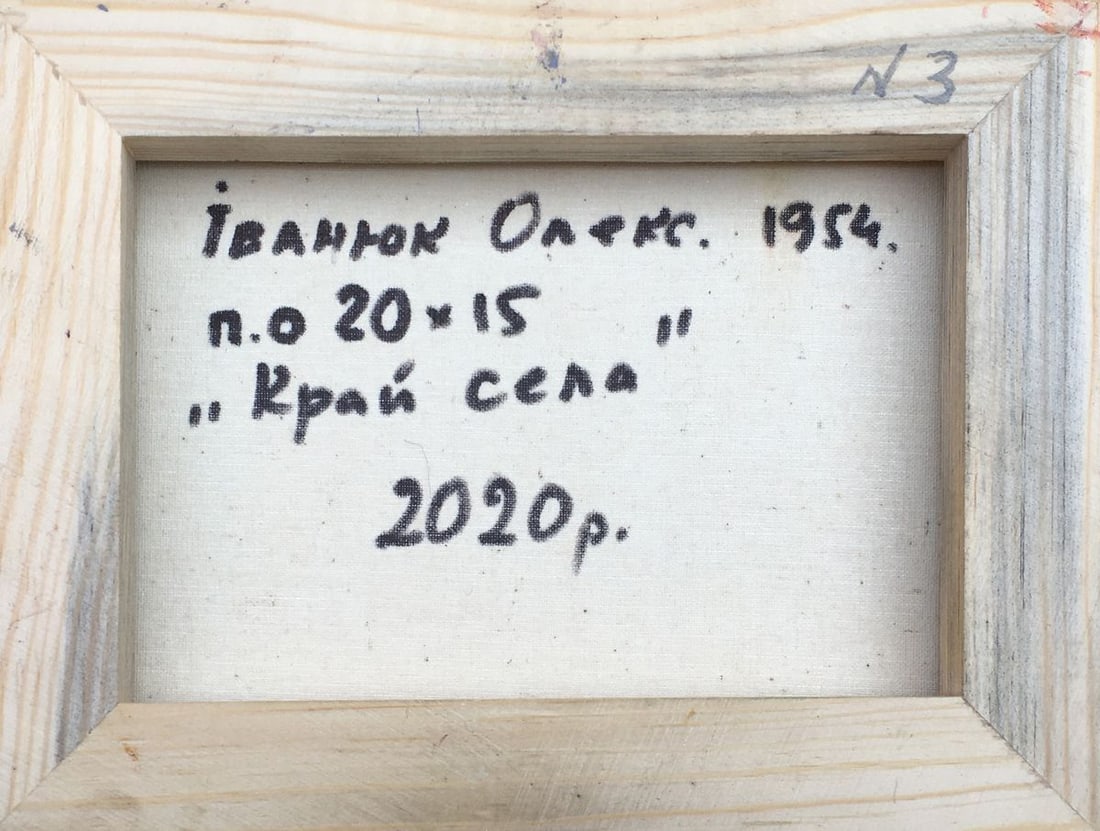 N 3
Іванюк Олекс. 1954.
п.о 20×15
„Край села"
2020р.